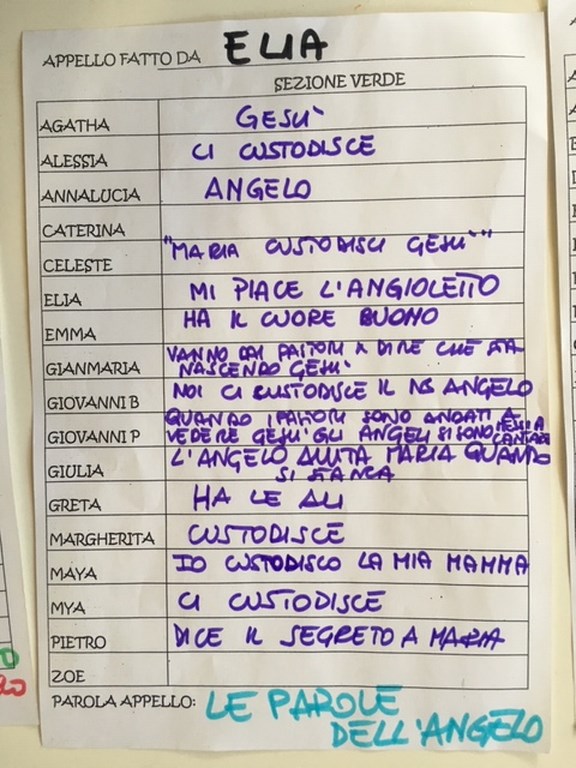 APPELLO FATTO DA ELIA
SEZIONE VERDE
AGATHA GESU'
ALESSIA CI CUSTODISCE
ANNALUCIA ANGELO
CATERINA
CELESTE "MARIA CUSTODISCI GESU'"
ELIA MI PIACE L'ANGIOLETTO
EMMA HA IL CUORE BUONO
GIANMARIA VANNO DAI PASTORI X DIRE CHE STA
NASCENDO GESU'
GIOVANNI B NOI CI CUSTODISCE IL NS ANGELO
QUANDO I PASTORI SONO ANDATI A
GIOVANNI P VEDERE GESU' GLI ANGELI SI SONO MESSI A
CANTARE
GIULIA L'ANGELO AIUTA MARIA QUANDO
SI STANCA
GRETA HA LE ALI
MARGHERITA CUSTODISCE
MAYA IO CUSTODISCO LA MIA MAMMA
MYA CI CUSTODISCE
PIETRO DICE IL SEGRETO A MARIA
ZOE
PAROLA APPELLO: LE PAROLE
DELL'ANGELO